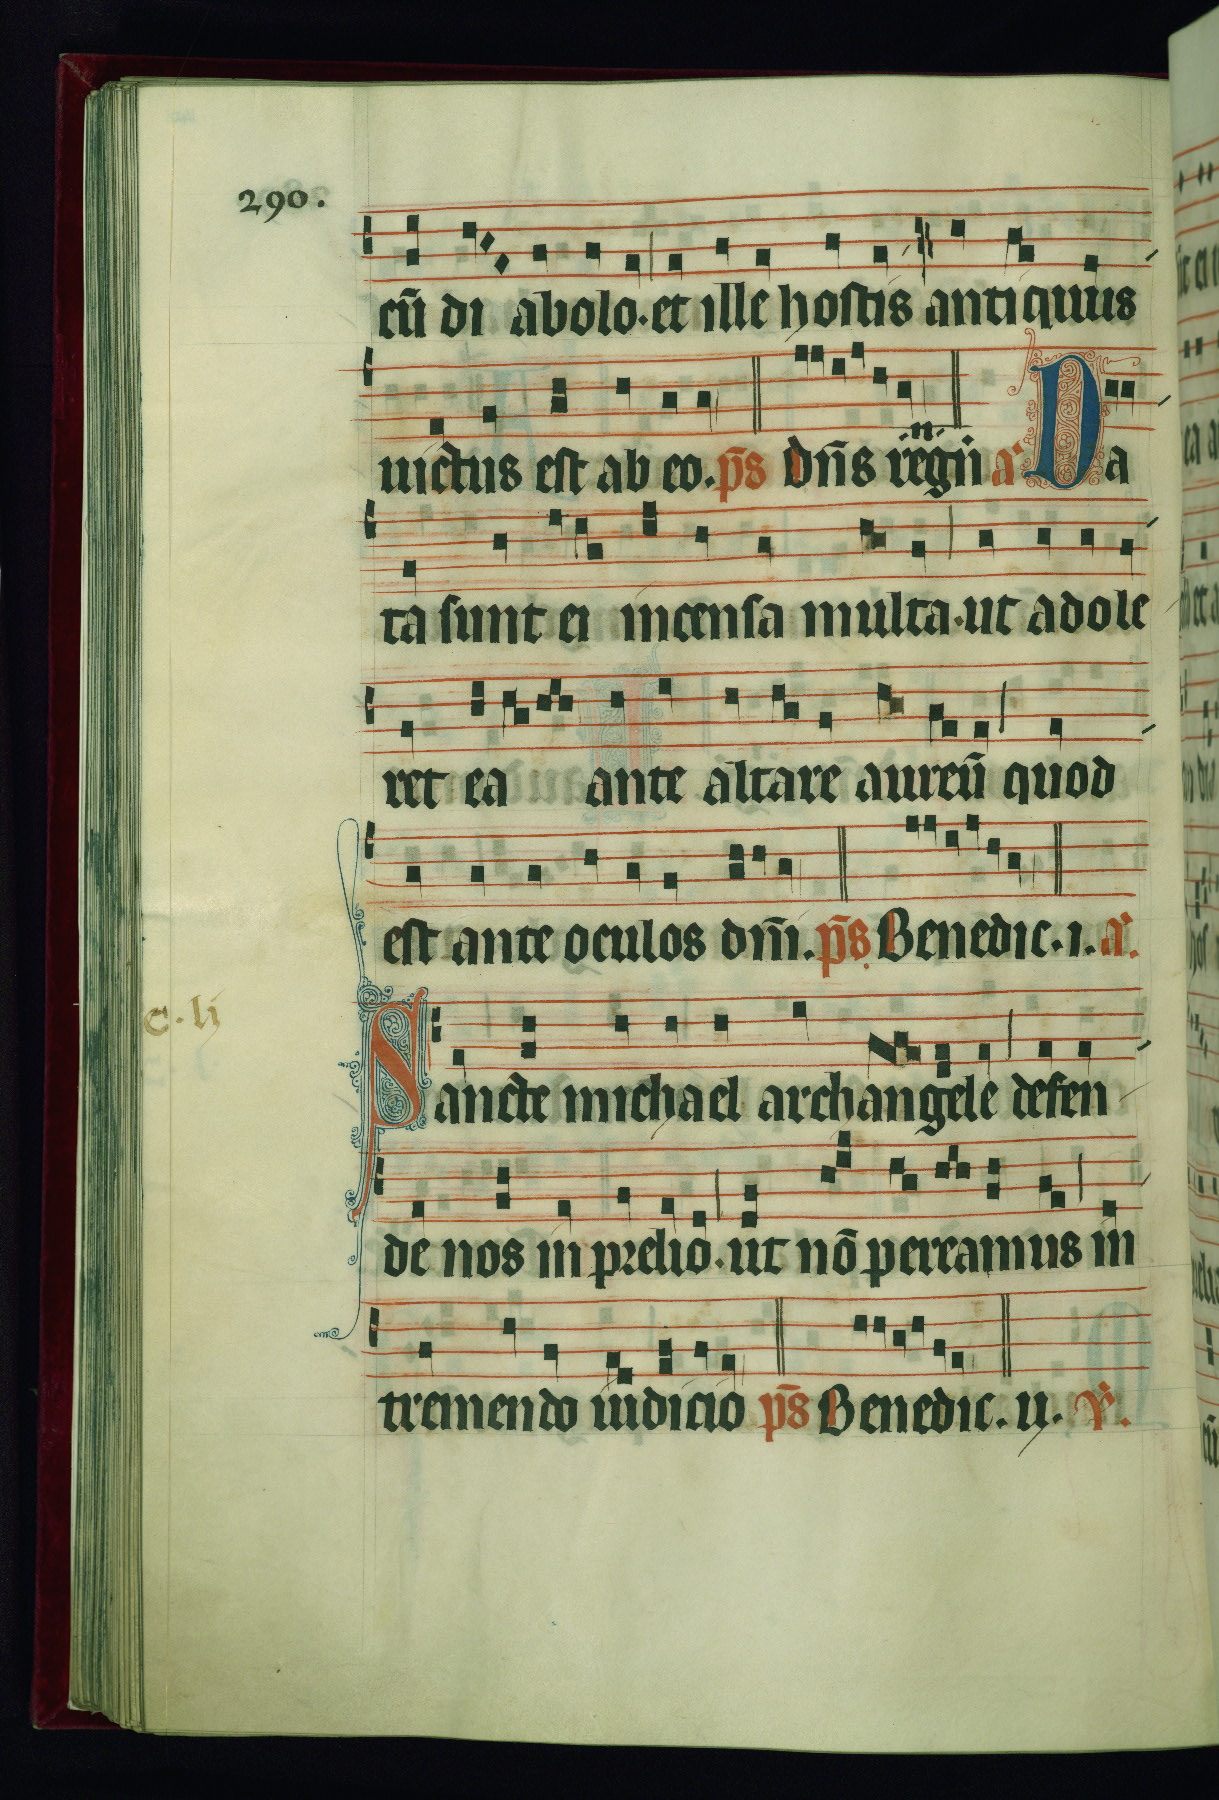 290.
cū di abolo·et ille hostis antiquus
uictus est ab eo. p̄s Dn̄s regn̄ a᷑ Da
ta sunt ei incensa multa·ut adole
ret ea ante altare aureū quod
est ante oculos dn̄i. p̄s. Benedic. i. a᷑.
Sancte michael archangele defen
de nos in prelio·ut nō pereamus in
tremendo iudicio p̄s Benedic. ii.